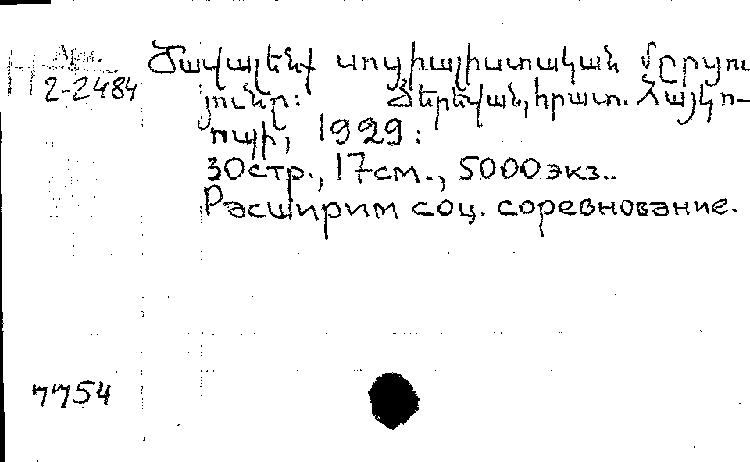 Арм.
H 2-2484
Ծավալենք սոցիալիստական մրցու
յունը: Յերեվան, հրատ. Հայկո-
ոպի, 1929:
30стр., 17см., 5000экз..
Расширим соц. соревнование.
7754